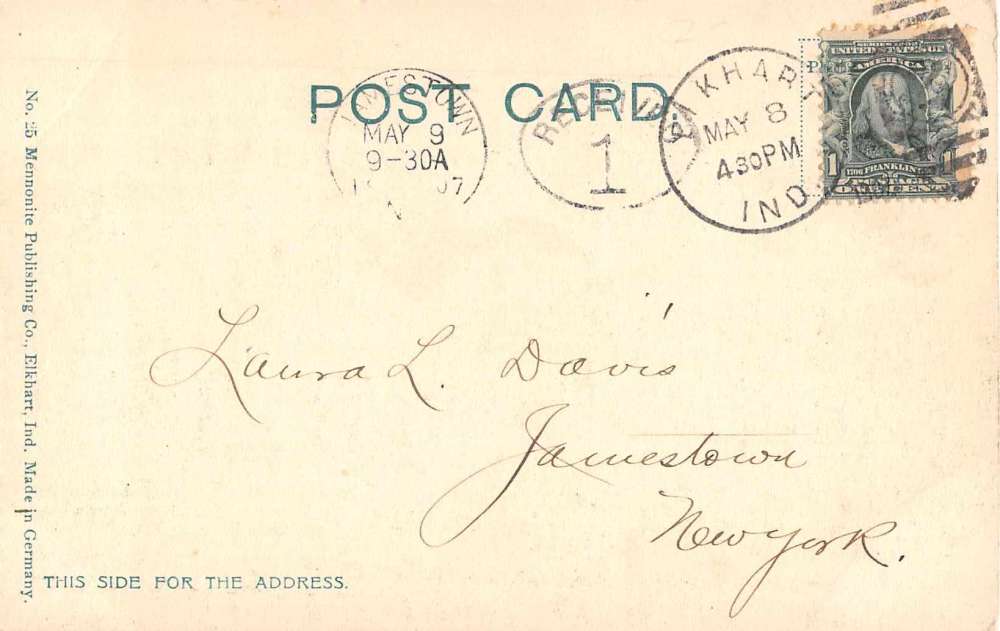 POST CARD.
JAMESTOWN
MAY 9
9-30A
07
1
ELKHART
MAY 8
430PM
IND.
SERIES 1902
UNITED STATES OF
AMERICA
1 1706 FRANKLIN 1
ONE CENT
Laura L. Davis
Jamestown
New York.
No. 25 Mennonite Publishing Co., Elkhart, Ind. Made in Germany.
THIS SIDE FOR THE ADDRESS.